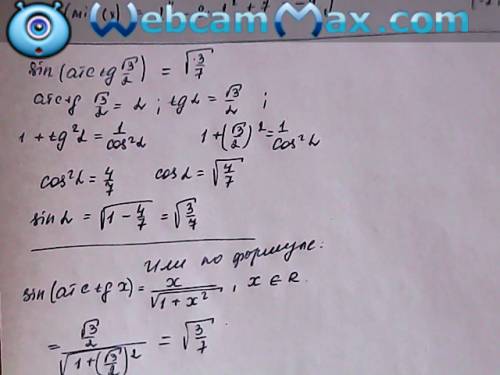 WebcamMax.com
sin(arctg √3/2) = √(3/7)
arctg √3/2 = α ; tg α = √3/2 ;
1 + tg²α = 1/cos²α 1 + (√3/2)² = 1/cos²α
cos²α = 4/7 cos α = √(4/7)
sin α = √(1 - 4/7) = √(3/7)
Или по формуле:
sin(arctg x) = x/√(1 + x²) , x ∈ R.
= (√3/2)/√(1 + (√3/2)²) = √(3/7)